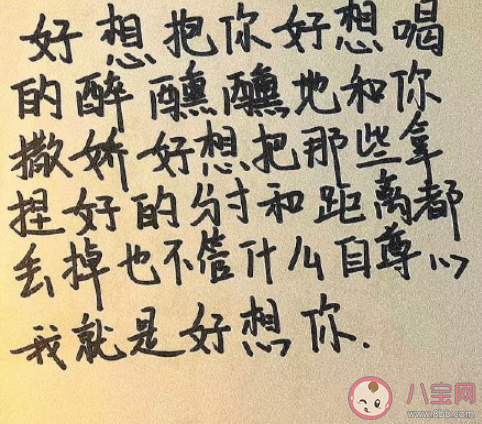 好想抱你好想喝
的醉醺醺地和你
撒娇好想把那些拿
捏好的分寸和距离都
丢掉也不管什么自尊
我就是好想你.
八宝网
www.8bb.com